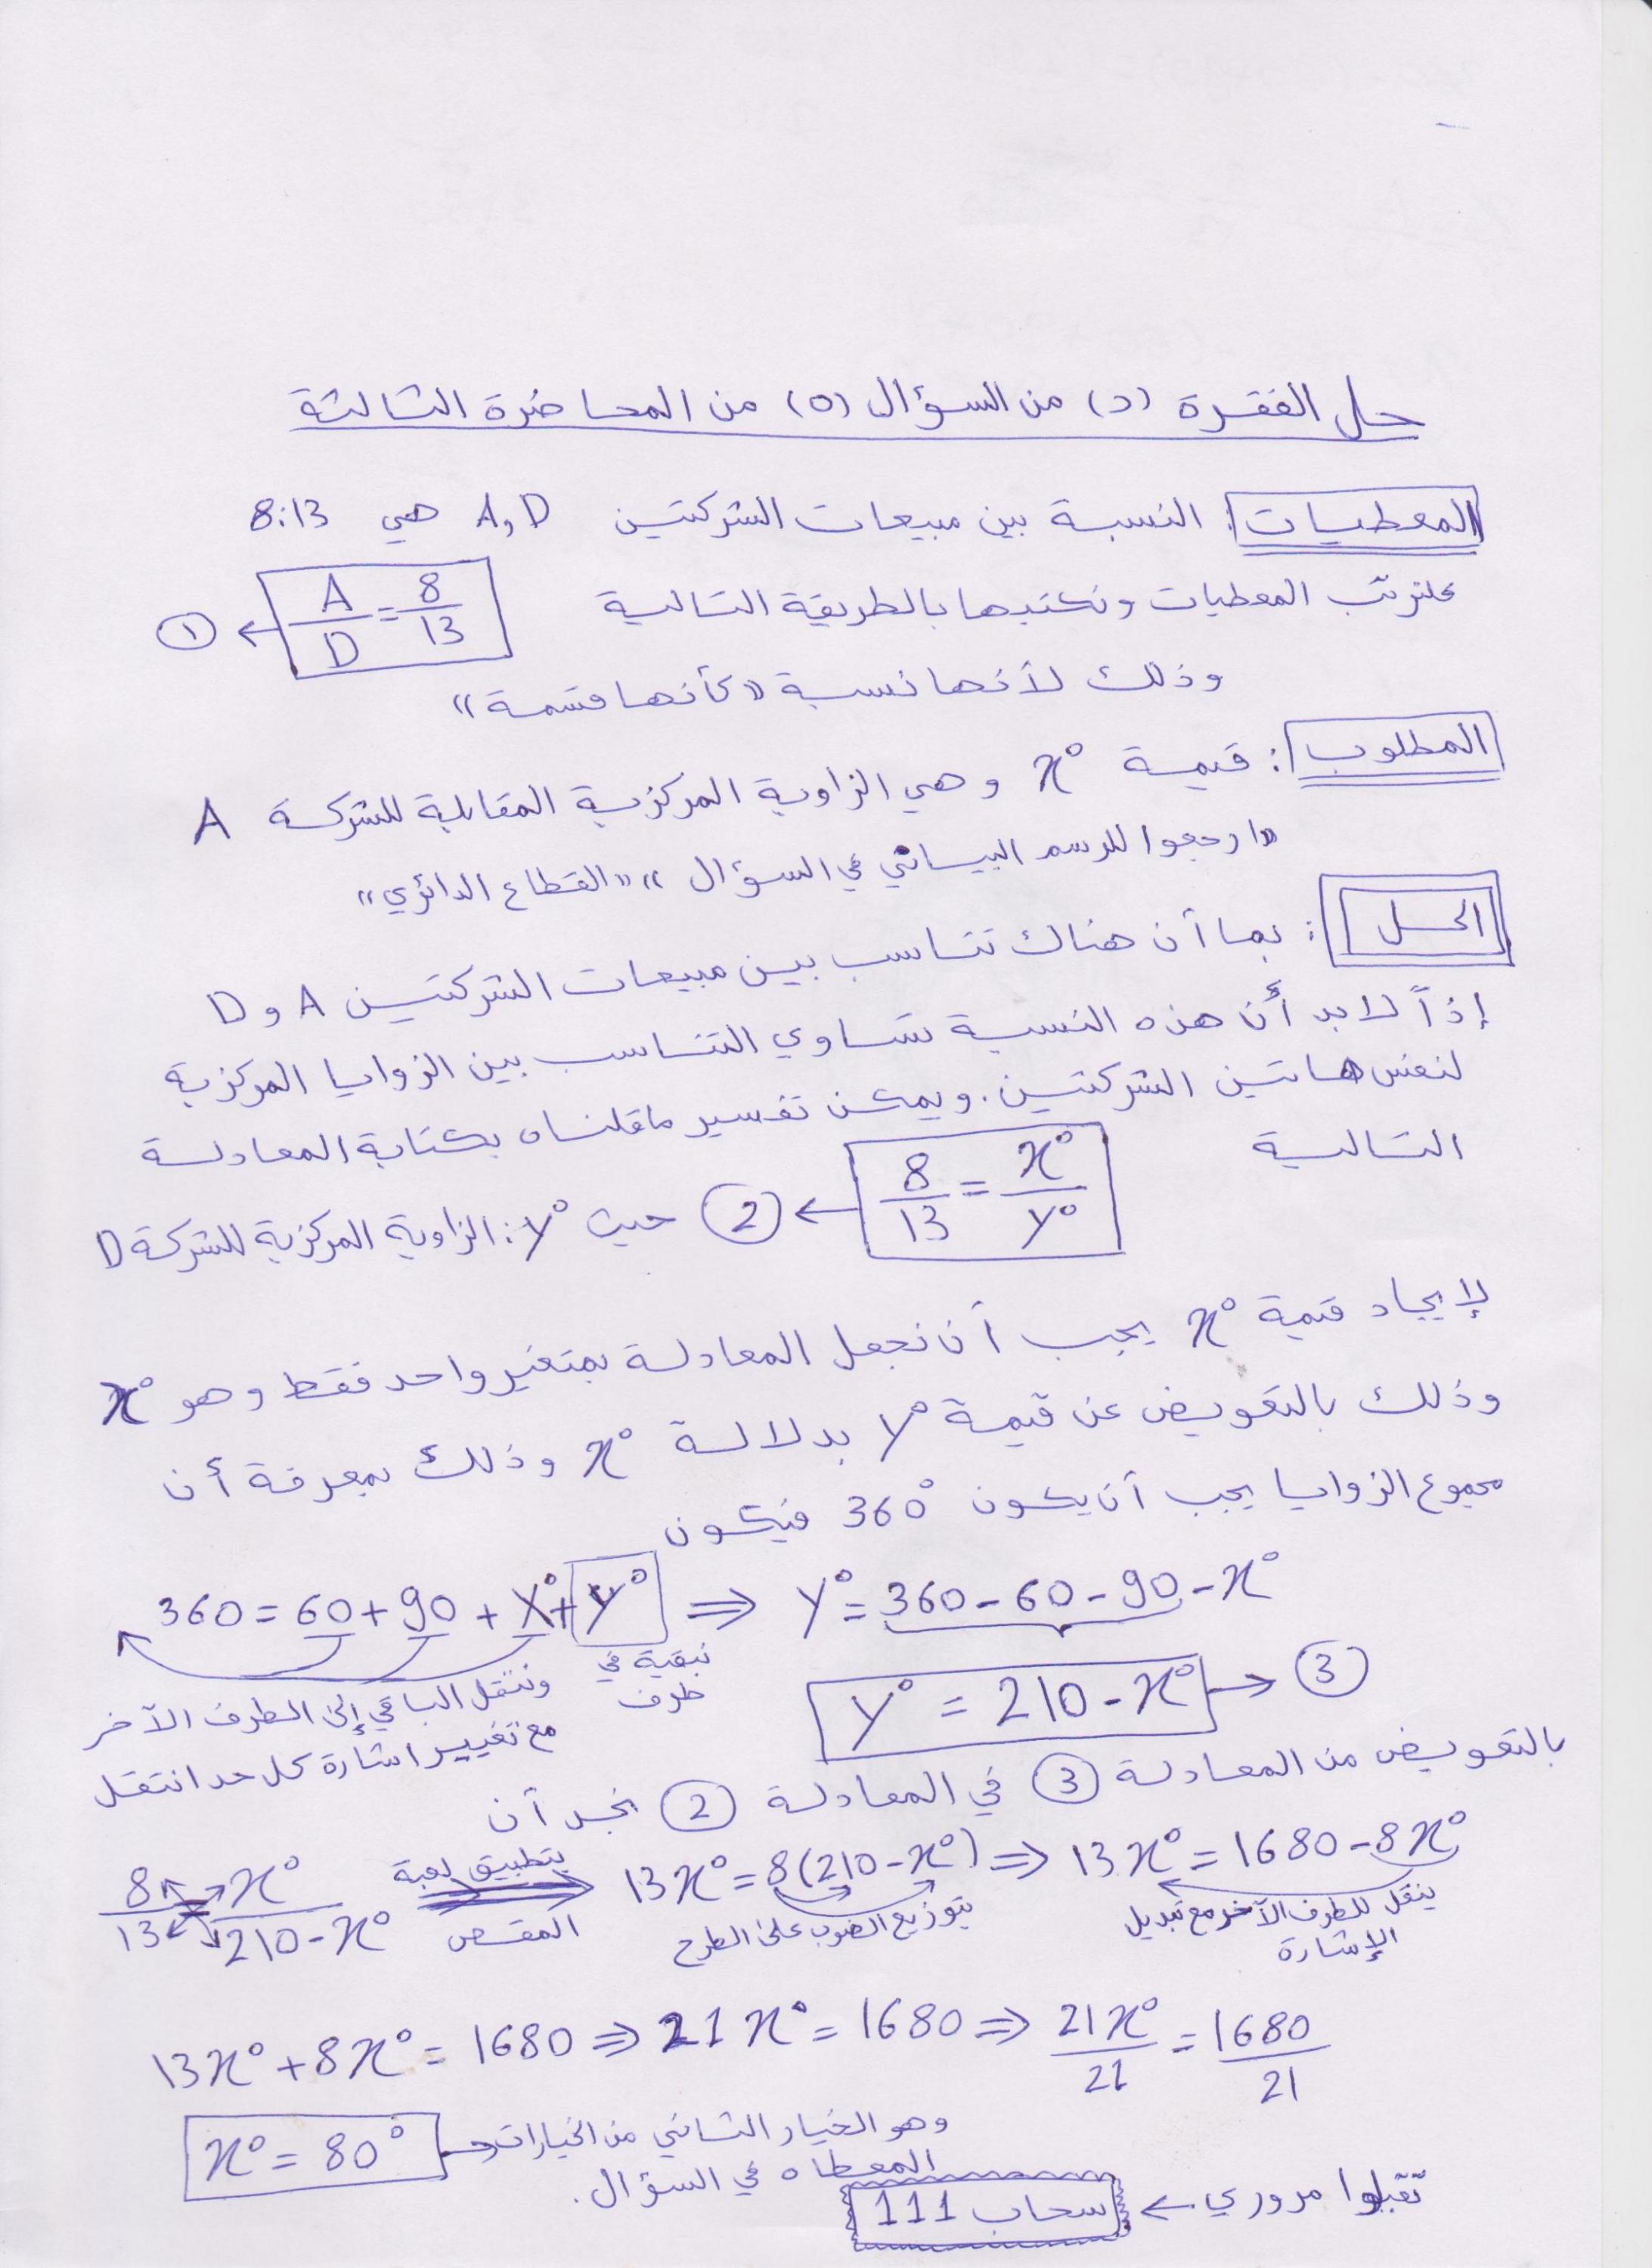 حل الفقرة (د) من السؤال (٥) من المحاضرة الثالثة
المعطيات: النسبة بين مبيعات الشركتين A,D هي 8:13
فلنرتب المعطيات ونكتبها بالطريقة التالية A/D = 8/13 ← ①
وذلك لأنها نسبة «كأنها قسمة»
المطلوب: قيمة x° وهي الزاوية المركزية المقابلة للشركة A
«ارجعوا للرسم البياني في السؤال» «القطاع الدائري»
الحل: بما أن هناك تناسب بين مبيعات الشركتين A و D
إذاً لابد أن هذه النسبة تساوي التناسب بين الزوايا المركزية
لنفس هاتين الشركتين. ويمكن تفسير ماقلناه بكتابة المعادلة
التالية
8/13 = x°/y° ← ② حيث y°: الزاوية المركزية للشركة D
لإيجاد قيمة x° يجب أن نجعل المعادلة بمتغير واحد فقط وهو x°
وذلك بالتعويض عن قيمة y° بدلالة x° وذلك بمعرفة أن
مجموع الزوايا يجب أن يكون 360° فيكون
360 = 60 + 90 + x° + y° ⇒ y° = 360 - 60 - 90 - x°
نبقيه في
طرف
وننقل الباقي إلى الطرف الآخر
مع تغيير اشارة كل حد انتقل
y° = 210 - x° → ③
بالتعويض من المعادلة ③ في المعادلة ② نجد أن
8/13 = x°/210 - x° ⇒ 13x° = 8(210 - x°) ⇒ 13x° = 1680 - 8x°
بتطبيق لعبة
المقص
بتوزيع الضرب على الطرح
ينقل للطرف الآخر مع تبديل
الإشارة
13x° + 8x° = 1680 ⇒ 21x° = 1680 ⇒ 21x°/21 = 1680/21
x° = 80° → وهو الخيار الثاني من الخيارات
المعطاه في السؤال.
تقبلوا مروري ← سحاب 111